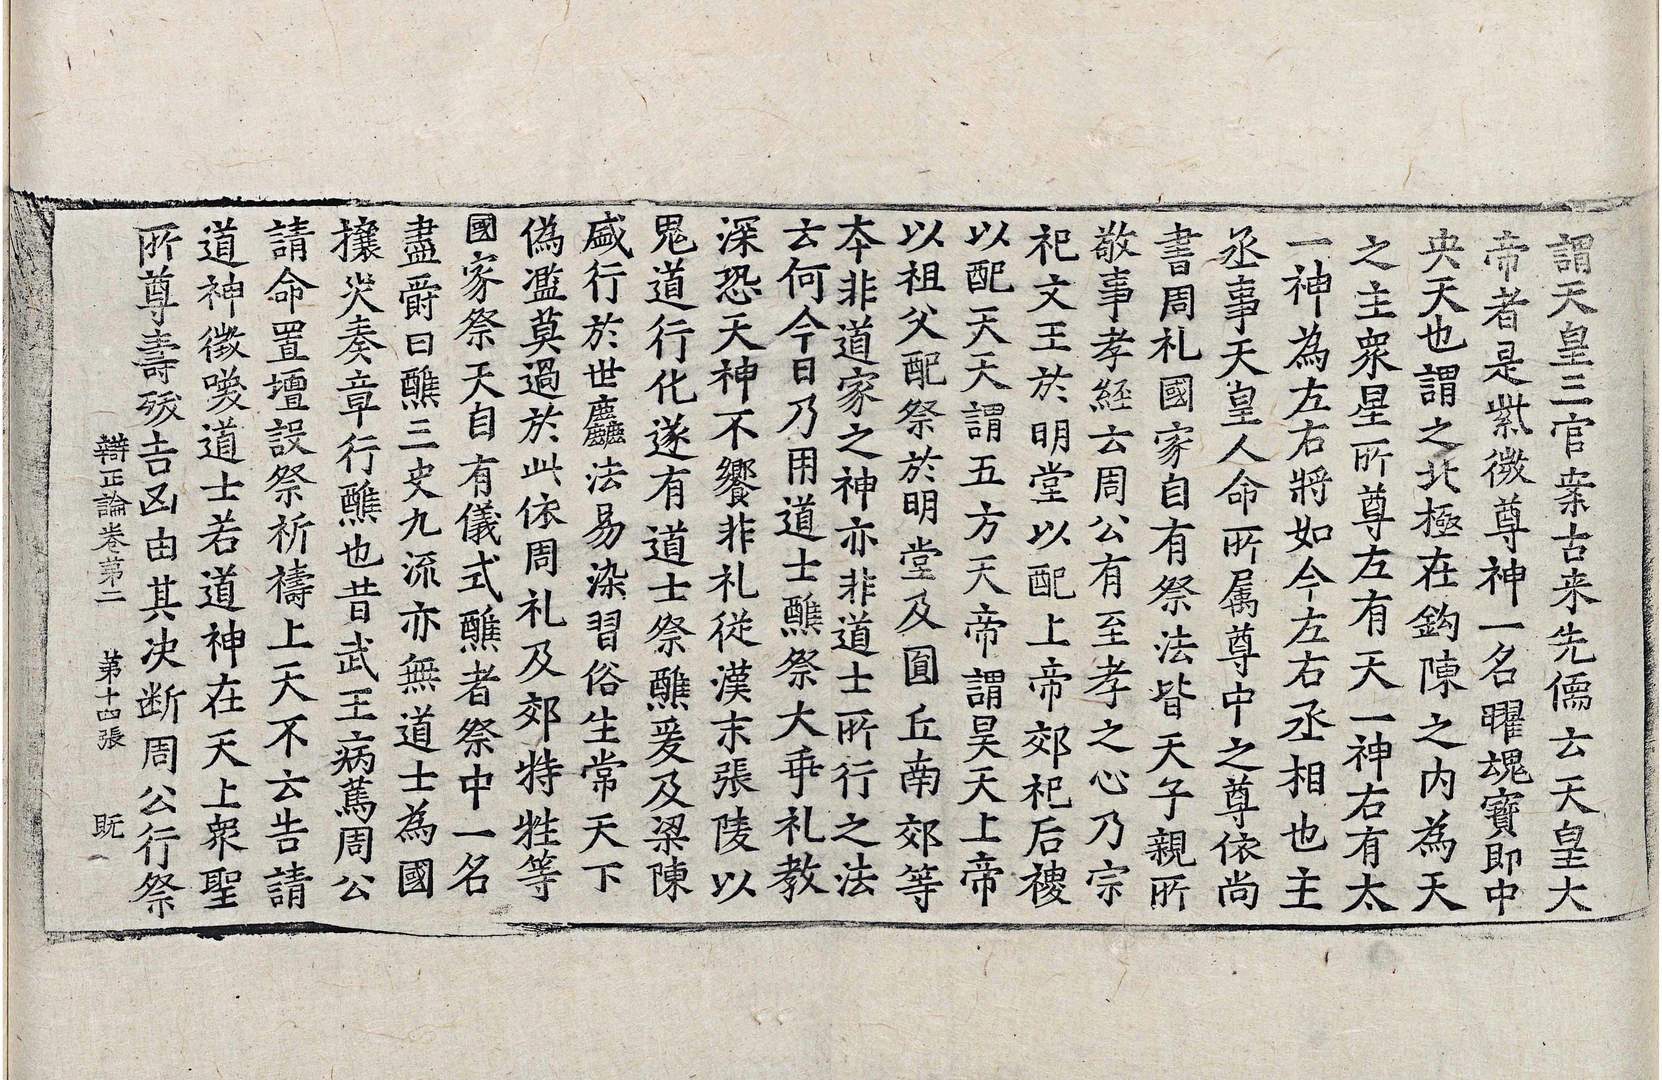 謂天皇三官案古来先儒云天皇大
帝者是紫微尊神一名曜魂寶即中
央天也謂之北極在鈎陳之内為天
之主衆星所尊左有天一神右有太
一神為左右將如今左右丞相也主
丞事天皇人命所属尊中之尊依尚
書周礼國家自有祭法皆天子親所
敬事孝經云周公有至孝之心乃宗
祀文王於明堂以配上帝郊祀后稷
以配天天謂五方天帝謂昊天上帝
以祖父配祭於明堂及圓丘南郊等
本非道家之神亦非道士所行之法
云何今日乃用道士醮祭大乖礼教
深恐天神不饗非礼從漢末張陵以
鬼道行化遂有道士祭醮爰及梁陳
盛行於世麤法易染習俗生常天下
偽濫莫過於此依周礼及郊特牲等
國家祭天自有儀式醮者祭中一名
盡爵曰醮三史九流亦無道士為國
攘災奏章行醮也昔武王病篤周公
請命置壇設祭祈禱上天不云告請
道神徵喚道士若道神在天上衆聖
所尊壽殀吉凶由其决断周公行祭
辯正論卷第二 第十四張 既